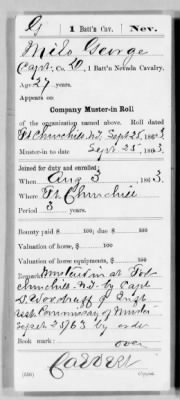 G | 1 Batt'n Cav. | Nev.
Milo George
Capt., Co. D, 1 Batt'n Nevada Cavalry.
Age 27 years.
Appears on
Company Muster-in Roll
of the organization named above. Roll dated
Ft Churchill N.T. Sept 25, 1863
Muster-in to date Sept 25, 1863
Joined for duty and enrolled:
When Aug 3 1863
Where Ft Churchill
Period 3 years.
Bounty paid $ 100; due $ 100
Valuation of horse, $ 100
Valuation of horse equipments, $ 100
Remarks: Mustered in at Fort
Churchill N.T. by Capt
S. Woodruff
Commissary of Muster
Sept 25/63 by order
over
Book mark:
Calvert
(356) Copyist.